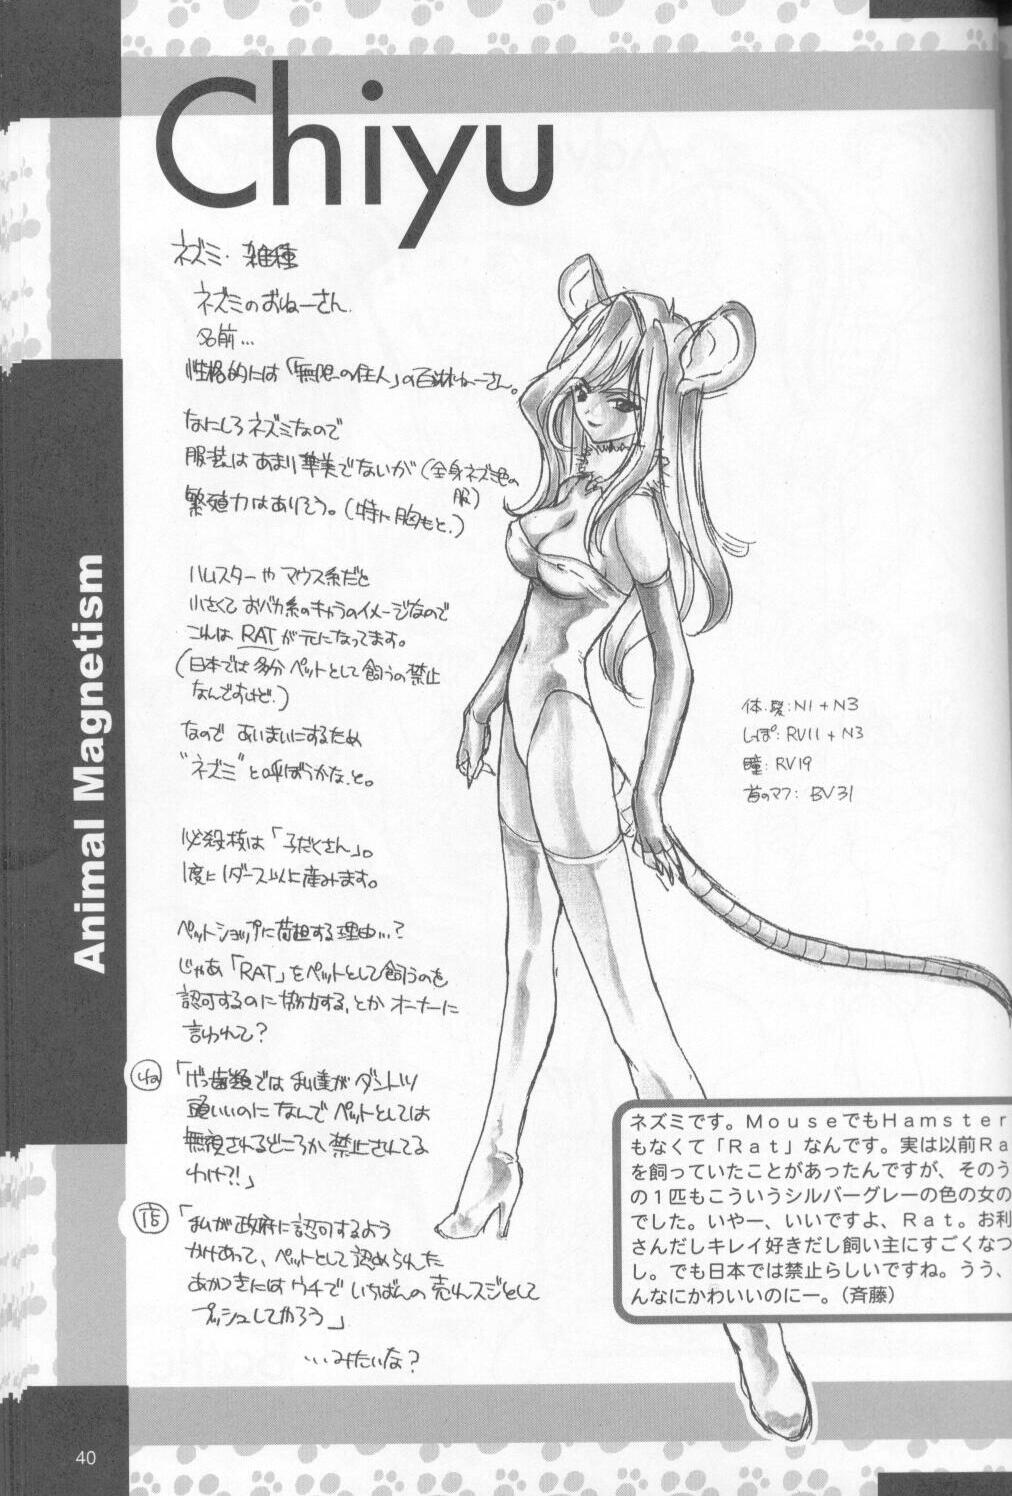 Chiyu
ネズミ・雑種
ネズミのおねーさん.
名前…
性格的には「無限の住人」の百琳ねーさん。
なにしろネズミなので
服装はあまり華美でないが(全身ネズミ色の
服)
繁殖力はありそう。(特に胸もと.)
ハムスターやマウス系だと
小さくておバカ系のキャラのイメージなので
こんなRATが元になってます。
(日本では多分ペットとして飼うの禁止
なんですけど.)
なので あいまいにするため
"ネズミ"と呼ぼうかな、と。
必殺技は「子だくさん」。
1度に1ダース以上産みます。
ペットショップに荷担する理由…?
じゃあ「RAT」をペットとして飼うのを
認可するのに協力する、とか オーナーに
言われて?
ね 「げっ歯類では私達がダントツ
頭いいのに なんでペットとしては
無視されるどころか禁止されてる
わけ?!」
店 「私が政府に認可するよう
かけあって、ペットとして認められた
あかつきにはウチでいちばんの売れスジとして
プッシュしてやろう」
…みたいな?
体・髪:N1+N3
しっぽ:RV11+N3
瞳:RV19
首のマフ:BV31
ネズミです。MouseでもHamster
もなくて「Rat」なんです。実は以前Ra
を飼っていたことがあったんですが、そのう
の1匹もこういうシルバーグレーの色の女の
でした。いやー、いいですよ、Rat。お利
さんだしキレイ好きだし飼い主にすごくなつ
し。でも日本では禁止らしいですね。うう、
んなにかわいいのにー。(斉藤)
Animal Magnetism
40